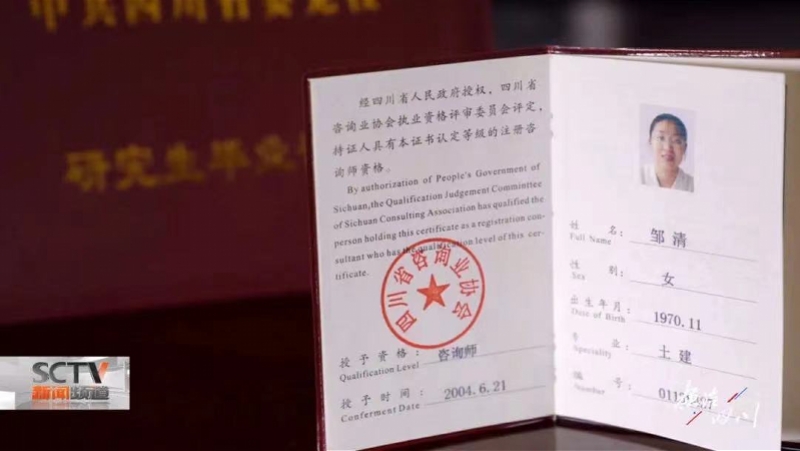 中共四川省委党校
研究生毕业
经四川省人民政府授权，四川省
咨询业协会执业资格评审委员会评定，
持证人具有本证书认定等级的注册咨
询师资格。
By authorization of People's Government of
Sichuan,the Qualification Judgement Committee
of Sichuan Consulting Association has qualified the
person holding this certificate as a registration con-
sultant who has the qualification level of this cer-
tificate.
四川省咨询业协会
授予资格：咨询师
Qualification Level
授予时间：2004.6.21
Conferment Date
姓名：邹清
Full Name
性别：女
Sex
出生年月：1970.11
Date of Birth
专业：土建
Speciality
编号：
Number
SCTV
新闻频道